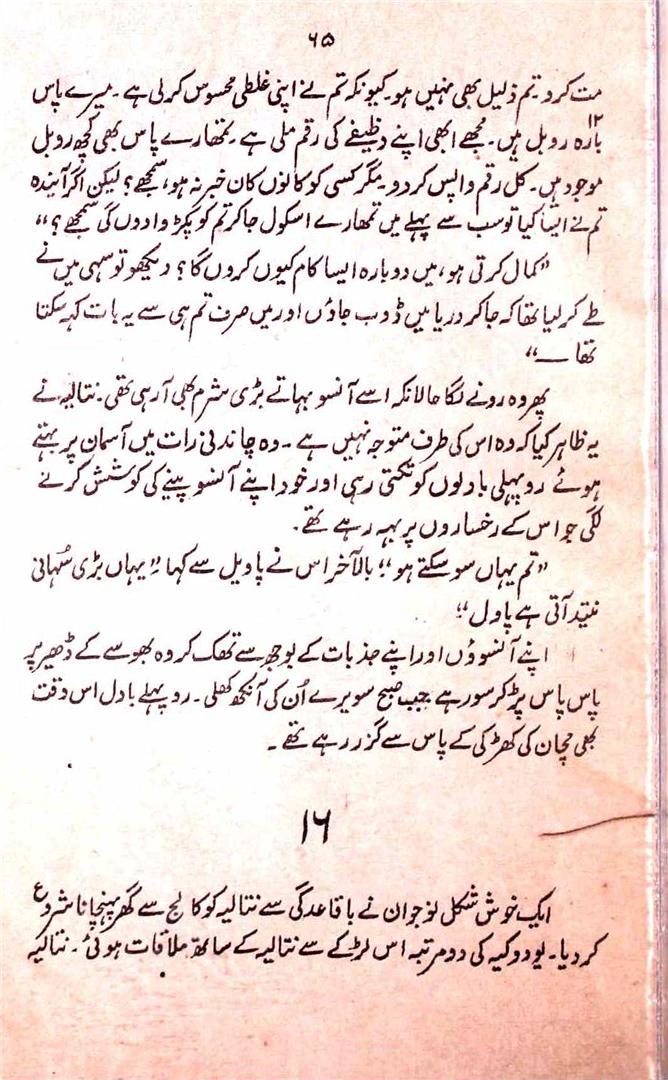 ۶۵
مت کرو۔ تم ذلیل بھی نہیں ہو۔ کیونکہ تم نے اپنی غلطی محسوس کرلی ہے۔ میرے پاس
۱۲
بارہ روبل ہیں۔ مجھے ابھی اپنے وظیفے کی رقم ملی ہے۔ تمھارے پاس بھی کچھ روبل
موجود ہیں۔ کل رقم واپس کردو۔ مگر کسی کو کانوں کان خبر نہ ہو، سمجھے؟ لیکن اگر آیندہ
تم نے ایسا کیا تو سب سے پہلے میں تمھارے اسکول جاکر تم کو پکڑوادوں گی سمجھے؟“
”کمال کرتی ہو، میں دوبارہ ایسا کام کیوں کروں گا؟ دیکھو تو سہی میں نے
طے کرلیا تھا کہ جاکر دریا میں ڈوب جاؤں اور میں صرف تم ہی سے یہ بات کہہ سکتا
تھا —“
پھر وہ رونے لگا حالانکہ اسے آنسو بہاتے بڑی شرم بھی آرہی تھی۔ نتالیہ نے
یہ ظاہر کیا کہ وہ اس کی طرف متوجہ نہیں ہے۔ وہ چاندنی رات میں آسمان پر بہتے
ہوئے روپہلی بادلوں کو تکتی رہی اور خود اپنے آنسو پینے کی کوشش کرنے
لگی جو اس کے رخساروں پر بہہ رہے تھے۔
”تم یہاں سو سکتے ہو“؛ بالآخر اس نے پاویل سے کہا۔ ”یہاں بڑی سُہانی
نیند آتی ہے پاول“؛
اپنے آنسوؤں اور اپنے جذبات کے بوجھ سے تھک کر وہ بھوسے کے ڈھیر پر
پاس پاس پڑ کر سو رہے جب صبح سویرے اُن کی آنکھ کھلی۔ روپہلے بادل اس وقت
بھی مچان کی کھڑکی کے پاس سے گزر رہے تھے۔
۱۶
ایک خوش شکل نوجوان نے باقاعدگی سے نتالیہ کو کالج سے گھر پہنچانا شروع
کر دیا۔ یودوکیہ کی دو مرتبہ اس لڑکے سے نتالیہ کے ساتھ ملاقات ہوئی۔ نتالیہ